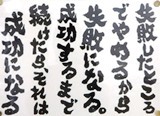 失敗したところ
でやめるから
失敗になる。
成功するまで
続けたら、それは
成功になる